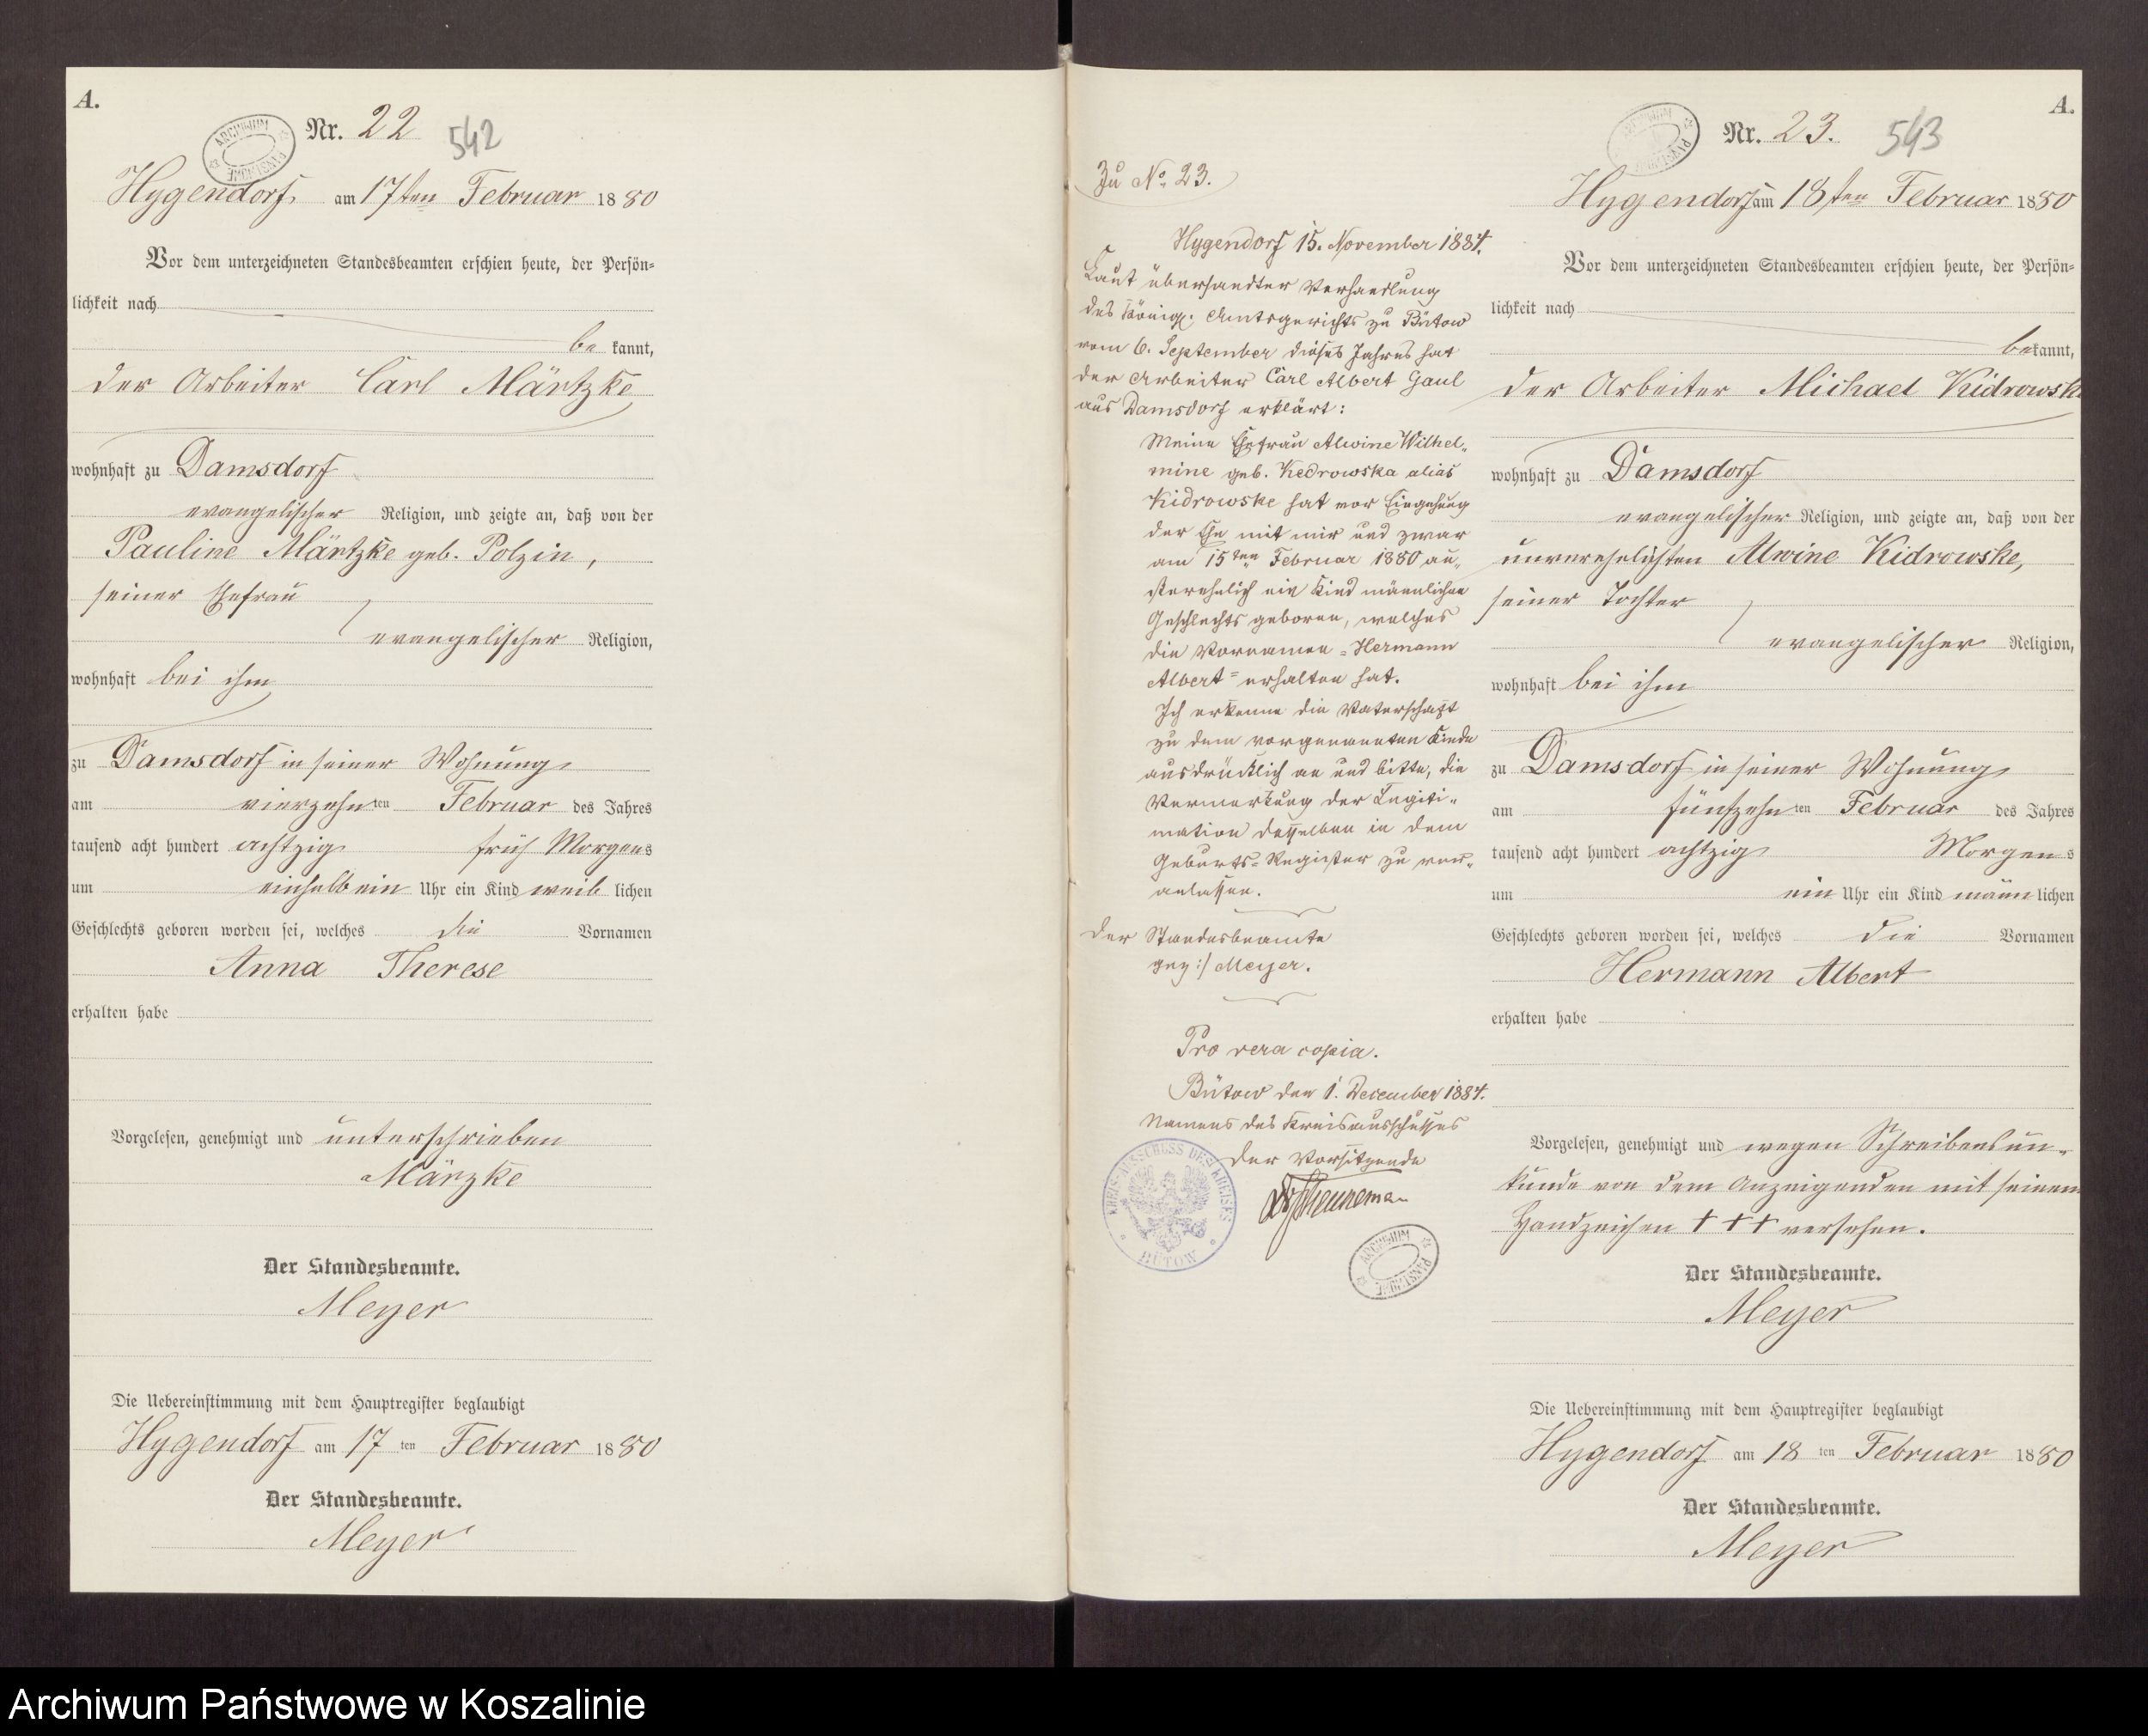 A.
Nr. 22
542
ARCHIWUM PAŃSTWOWE
Hygendorf, am 17ten Februar 1880
Vor dem unterzeichneten Standesbeamten erschien heute, der Persön=
lichkeit nach
be kannt,
der Arbeiter Carl Märtzke
wohnhaft zu Damsdorf
evangelischer Religion, und zeigte an, daß von der
Pauline Märtzke geb. Polzin,
seiner Ehefrau
evangelischer Religion,
wohnhaft bei ihm
zu Damsdorf in seiner Wohnung
am vierzehn ten Februar des Jahres
tausend acht hundert achtzig früh Morgens
um einhalb ein Uhr ein Kind weib lichen
Geschlechts geboren worden sei, welches die Vornamen
Anna Therese
erhalten habe
Vorgelesen, genehmigt und unterschrieben
Märzke
Der Standesbeamte.
Meyer
Die Uebereinstimmung mit dem Hauptregister beglaubigt
Hygendorf am 17 ten Februar 1880
Der Standesbeamte.
Meyer
Zu No. 23.
Hygendorf 15. November 1884.
Laut übersandter Verhandlung
des Königl. Amtsgerichts zu Bütow
vom 6. September dieses Jahres hat
der Arbeiter Carl Albert Gaul
aus Damsdorf erklärt:
Meine Ehefrau Alwine Wilhel-
mine geb. Kedrowska alias
Kidrowske hat vor Eingehung
der Ehe mit mir und zwar
am 15ten Februar 1880 au-
ßerehelich ein Kind männlichen
Geschlechts geboren, welches
die Vornamen "Hermann
Albert" erhalten hat.
Ich erkenne die Vaterschaft
zu dem vorgenannten Kinde
ausdrücklich an und bitte, die
Vermerkung der Legiti-
mation desselben in dem
Geburts-Register zu ver-
anlassen.
Der Standesbeamte
gez:/ Meyer.
Pro vera copia.
Bütow den 1. December 1884.
Namens des Kreisausschusses
Der Vorsitzende
KREIS-AUSSCHUSS DES KREISES BÜTOW
ARCHIWUM PAŃSTWOWE
A.
Nr. 23.
543
ARCHIWUM PAŃSTWOWE
Hygendorf am 18ten Februar 1880
Vor dem unterzeichneten Standesbeamten erschien heute, der Persön=
lichkeit nach
bekannt,
der Arbeiter Michael Kidrowsk
wohnhaft zu Damsdorf
evangelischer Religion, und zeigte an, daß von der
unverehelichten Alwine Kidrowske,
seiner Tochter
evangelischer Religion,
wohnhaft bei ihm
zu Damsdorf in seiner Wohnung
am fünfzehn ten Februar des Jahres
tausend acht hundert achtzig Morgens
um ein Uhr ein Kind männ lichen
Geschlechts geboren worden sei, welches die Vornamen
Hermann Albert
erhalten habe
Vorgelesen, genehmigt und wegen Schreibensun-
kunde von dem Anzeigenden mit seinem
Handzeichen +++ versehen.
Der Standesbeamte.
Meyer
Die Uebereinstimmung mit dem Hauptregister beglaubigt
Hygendorf am 18 ten Februar 1880
Der Standesbeamte.
Meyer
Archiwum Państwowe w Koszalinie